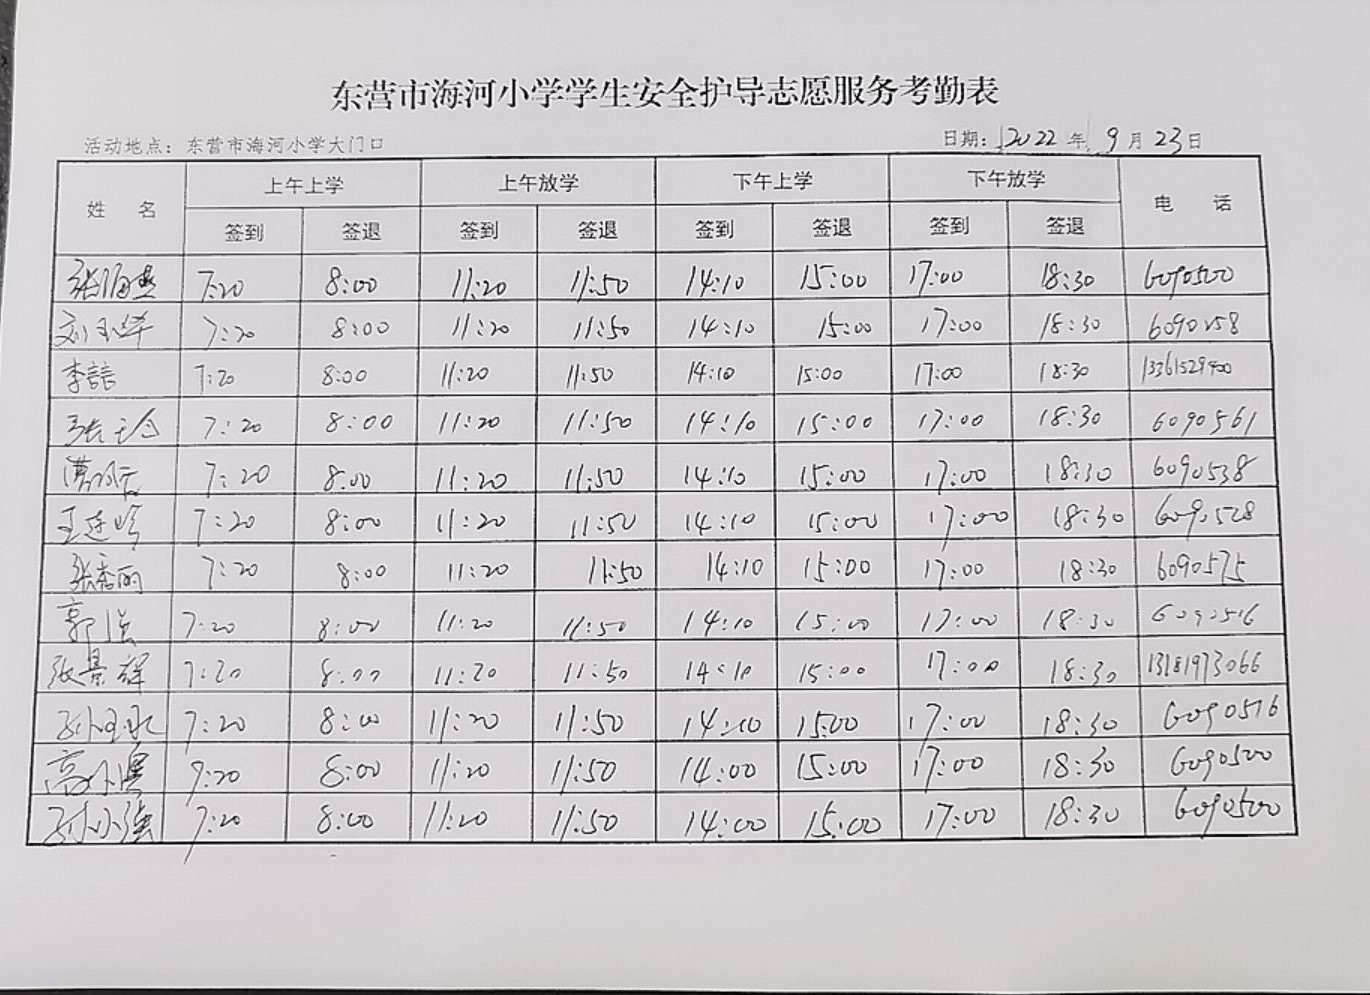 东营市海河小学学生安全护导志愿服务考勤表
活动地点：东营市海河小学大门口 日期：2022年9月23日
姓 名 上午上学 上午放学 下午上学 下午放学 电 话
签到 签退 签到 签退 签到 签退 签到 签退
7:20 8:00 11:20 11:50 14:10 15:00 17:00 18:30 6090500
刘玉华 7:20 8:00 11:20 11:50 14:10 15:00 17:00 18:30 6090558
李喆 7:20 8:00 11:20 11:50 14:10 15:00 17:00 18:30
7:20 8:00 11:20 11:50 14:10 15:00 17:00 18:30 6090561
7:20 8:00 11:20 11:50 14:10 15:00 17:00 18:30 6090538
7:20 8:00 11:20 11:50 14:10 15:00 17:00 18:30 6090528
张秀丽 7:20 8:00 11:20 11:50 14:10 15:00 17:00 18:30 6090575
郭强 7:20 8:00 11:20 11:50 14:10 15:00 17:00 18:30 6090516
张景辉 7:20 8:00 11:20 11:50 14:10 15:00 17:00 18:30 13181973066
7:20 8:00 11:20 11:50 14:10 15:00 17:00 18:30 6090516
7:20 8:00 11:20 11:50 14:00 15:00 17:00 18:30 6090500
孙小强 7:20 8:00 11:20 11:50 14:00 15:00 17:00 18:30 6090500